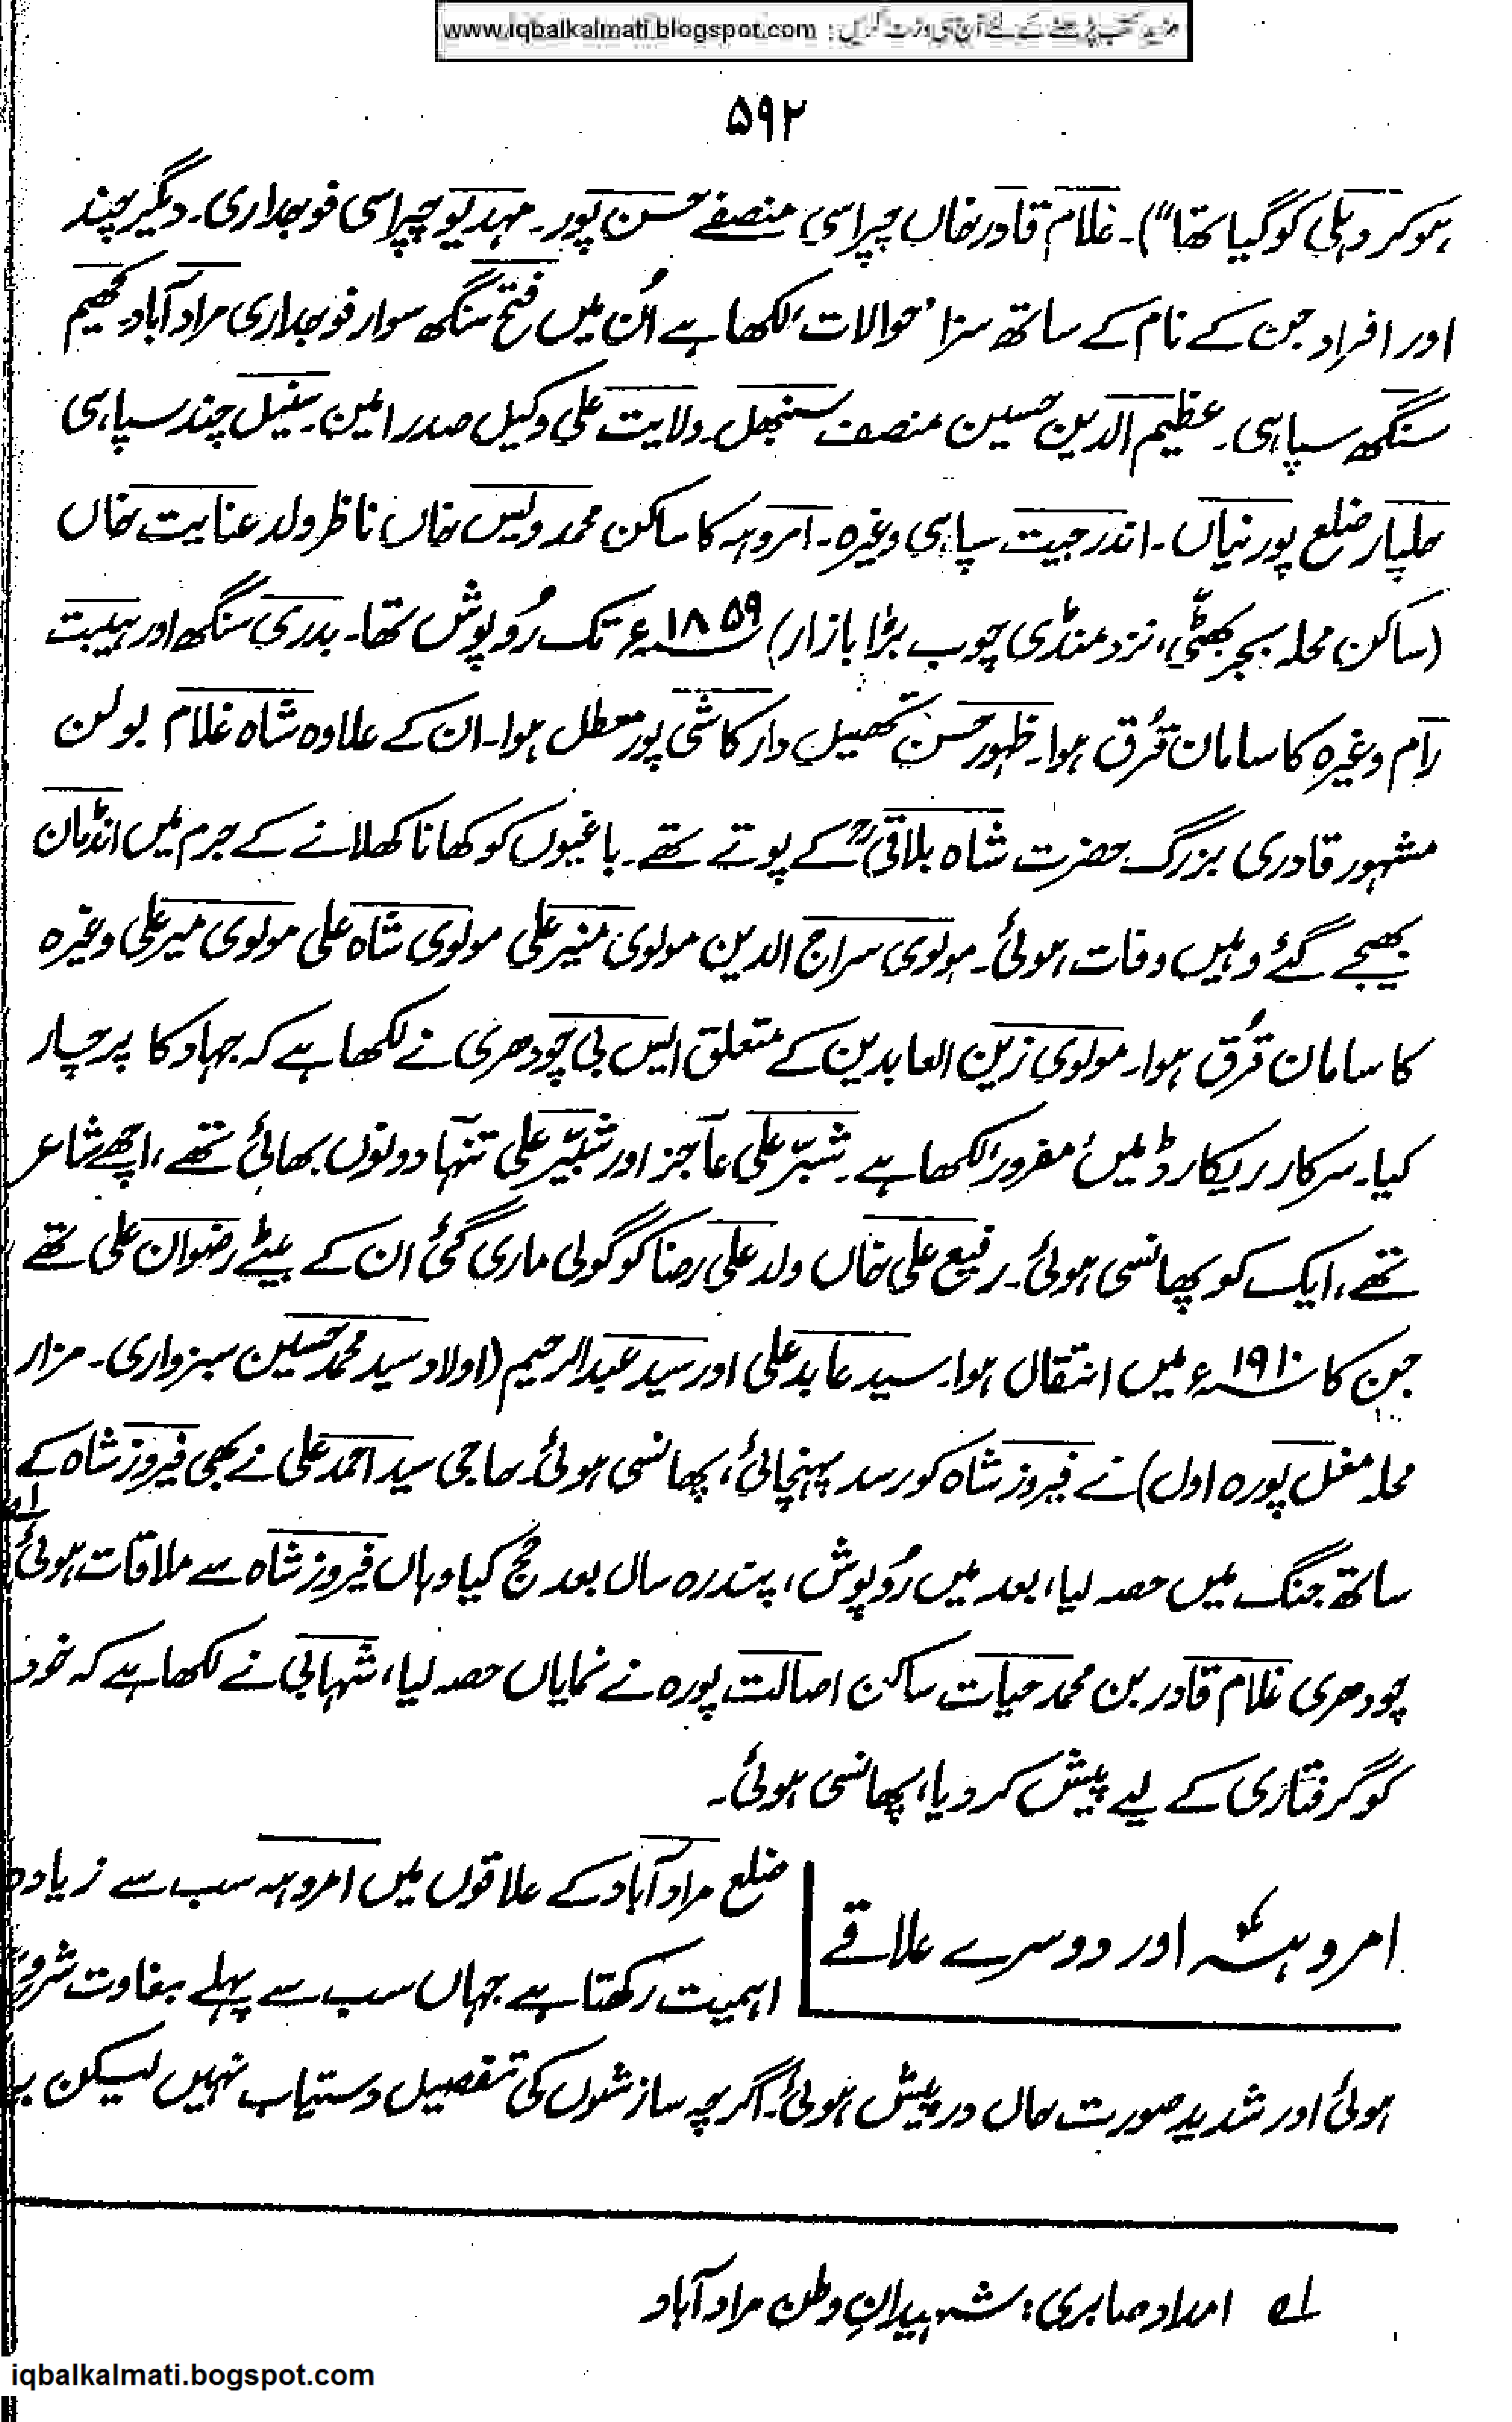 مزید کتب پڑھنے کے لئے آج ہی وزٹ کریں : www.iqbalkalmati.blogspot.com
۵۹۲
ہوکر دہلی کو گیا تھا“)۔ غلام قادر خاں چپراسی منصفے حسن پور۔ مہدیو چپراسی فوجداری۔ دیگر چند
اور افراد جن کے نام کے ساتھ سزا ’حوالات‘ لکھا ہے اُن میں فتح سنگھ سوار فوجداری مرادآباد۔ کھیم
سنگھ سپاہی۔ عظیم الدین حسین منصف سنبھل۔ ولایت علی وکیل صدر امین۔ سنیل چند سپاہی
جلپار ضلع پورنیاں۔ اندرجیت سپاہی وغیرہ۔ امروہہ کا ساکن محمد ویس خاں ناظر ولد عنایت خاں
(ساکن محلہ بجر بھٹی، نزد منڈی چوب بڑا بازار) ۱۸۵۹ء تک رُوپوش تھا۔ بدری سنگھ اور ہیبت
رام وغیرہ کا سامان قُرق ہوا۔ ظہور حسن تحصیل دار کاشی پور معطل ہوا۔ ان کے علاوہ شاہ غلام بولن
مشہور قادری بزرگ حضرت شاہ بلاقیؒ کے پوتے تھے۔ باغیوں کو کھانا کھلانے کے جرم میں انڈمان
بھیجے گئے وہیں وفات ہوئی۔ مولوی سراج الدین مولوی منیر علی مولوی شاہ علی مولوی میر علی وغیرہ
کا سامان قُرق ہوا۔ مولوی زین العابدین کے متعلق ایس بی چودھری نے لکھا ہے کہ جہاد کا پرچار
کیا۔ سرکار ریکارڈ میں ’مفرور‘ لکھا ہے۔ شبّر علی عاجز اور شبّیر علی تنہا دونوں بھائی تھے، اچھے شاعر
تھے، ایک کو پھانسی ہوئی۔ رفیع علی خاں ولد علی رضا کو گولی ماری گئی ان کے بیٹے رضوان علی تھے
جن کا ۱۹۱۰ء میں انتقال ہوا۔ سید عابد علی اور سید عبدالرحیم (اولاد سید محمد حسین سبزواری۔ مزار
محلہ مغل پورہ اول) نے فیروز شاہ کو رسد پہنچائی، پھانسی ہوئی۔ حاجی سید احمد علی نے بھی فیروز شاہ کے
ساتھ جنگ میں حصہ لیا، بعد میں رُوپوش، پندرہ سال بعد حج کیا وہاں فیروز شاہ سے ملاقات ہوئی لہ
چودھری غلام قادر بن محمد حیات ساکن اصالت پورہ نے نمایاں حصہ لیا، شہابی نے لکھا ہے کہ خود
کو گرفتاری کے لیے پیش کر دیا، پھانسی ہوئی۔
امروہہ اور دوسرے علاقے
ضلع مرادآباد کے علاقوں میں امروہہ سب سے زیادہ
اہمیت رکھتا ہے جہاں سب سے پہلے بغاوت شروع
ہوئی اور شدید صورت حال درپیش ہوئی۔ اگرچہ سازشوں کی تفصیل دستیاب نہیں لیکن
لہ امداد صابری: شہیدانِ وطن مرادآباد
iqbalkalmati.bogspot.com